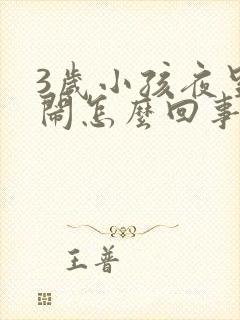 3歲小孩夜
鬧怎麼回事
王普